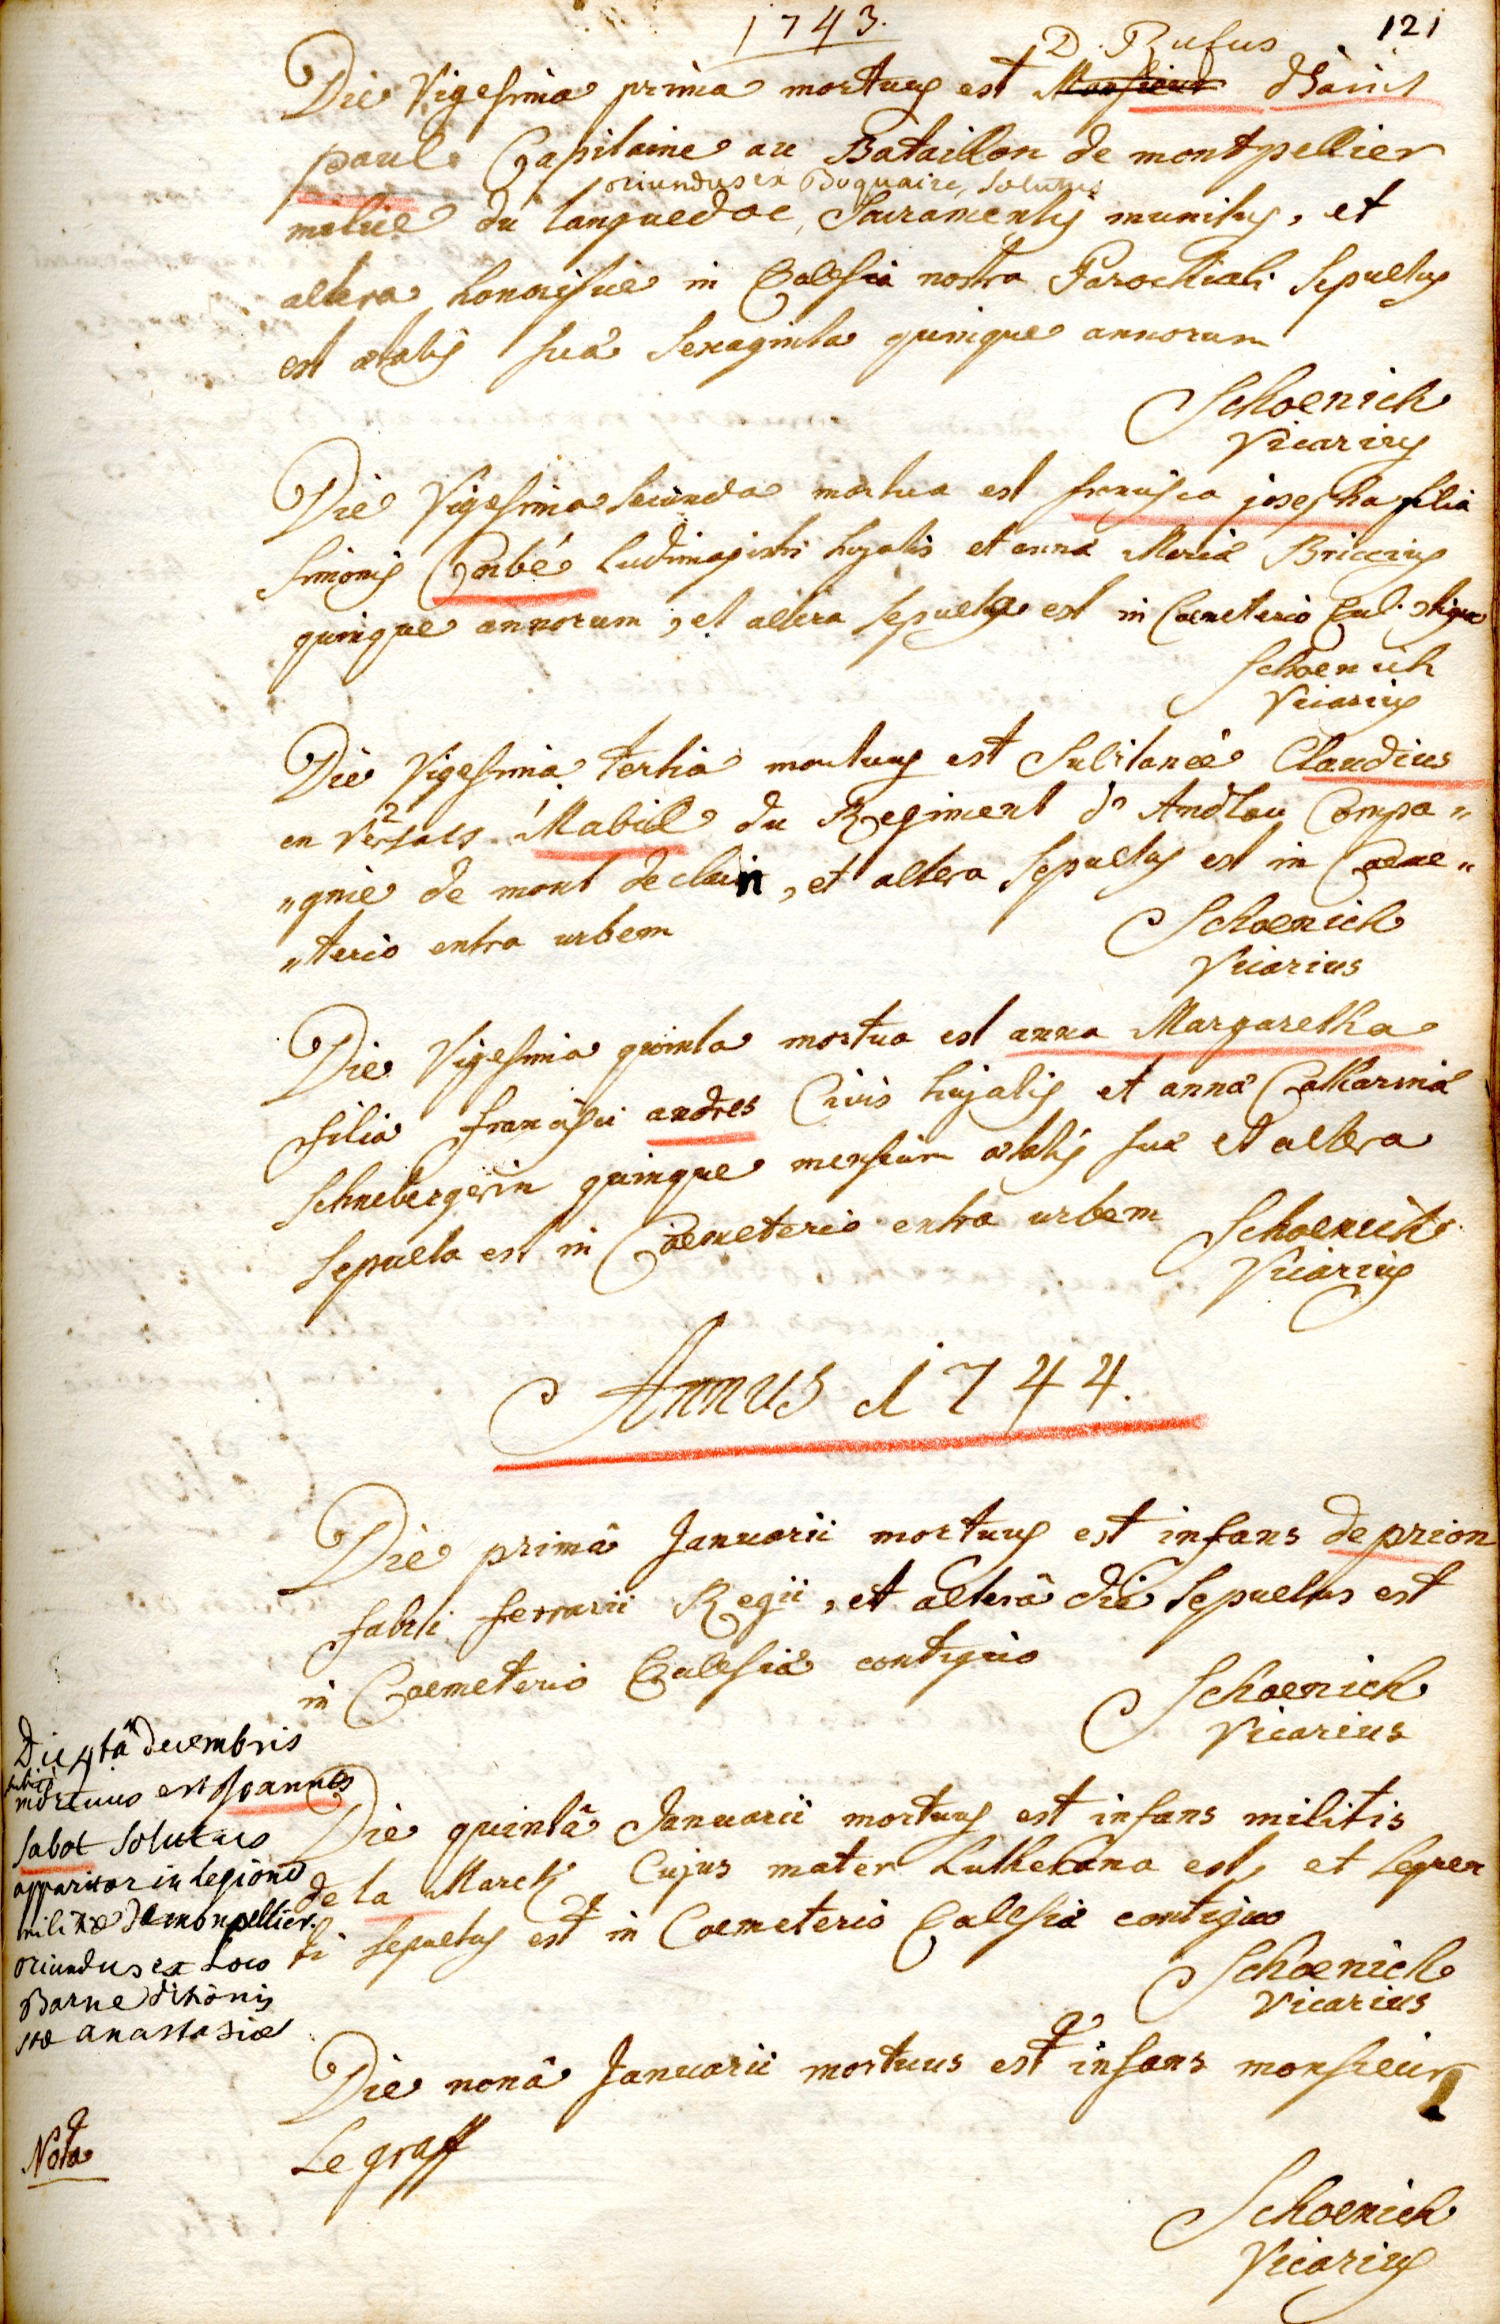 1743.
121
D. Rufus
Die Vigesima prima mortuus est Monsieur dSainct
paul Capitaine au Bataillon de montpellier
oriundus ex Boquaire, solutus
milice du languedoc, Sacramentis munitus, et
altera honorifice in Ecclesia nostra Parochiali sepultus
est ætatis suæ sexaginta quinque annorum
Schoenich
Vicarius
Die Vigesima secunda mortua est francisca josepha filia
simonis Corbé Ludimagistri hujatis et anna Maria Briccius
quinque annorum, et altera sepulta est in Coemeterio Eccl. contiguo
Schoenich
Vicarius
Die Vigesima tertia mortuus est subitaneè Claudius
en Versats Mabile du Regiment d'Andlau Compa"
"gnie de mont declain, et altera sepultus est in Coeme"
"terio extra urbem
Schoenich
Vicarius
Die Vigesima quinta mortua est anna Margaretha
filia francisci andres Civis hujatis et anna Catharina
Schnebergerin quinque mensium ætatis suæ et altera
sepulta est in Coemeterio extra urbem
Schoenich
Vicarius
Annus 1744.
Die primâ Januarii mortuus est infans de prion
fabri ferrarii Regii, et alterâ die sepultus est
in Coemeterio Ecclesiæ contiguo
Schoenich
Vicarius
Die 4tâ Xdecembris
subitò
mortuus est Joannes
Sabot solutus
apparitor in legione
militiæ de monpellier.
oriundus ex Loco
Barne ditionis
stæ anastasiæ
Die quintâ Januarii mortuus est infans militis
de la Marck Cujus mater Lutherana est, et sequen
ti sepultus est in Coemeterio Ecclesiæ contiguo
Schoenich
Vicarius
Die nonâ Januarii mortuus est infans monsieur
Le graff
Nota
Schoenich
Vicarius